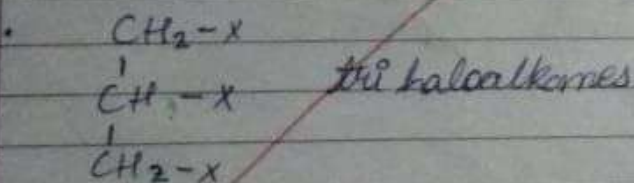 CH2-x
CH-x tri haloalkanes
CH2-x